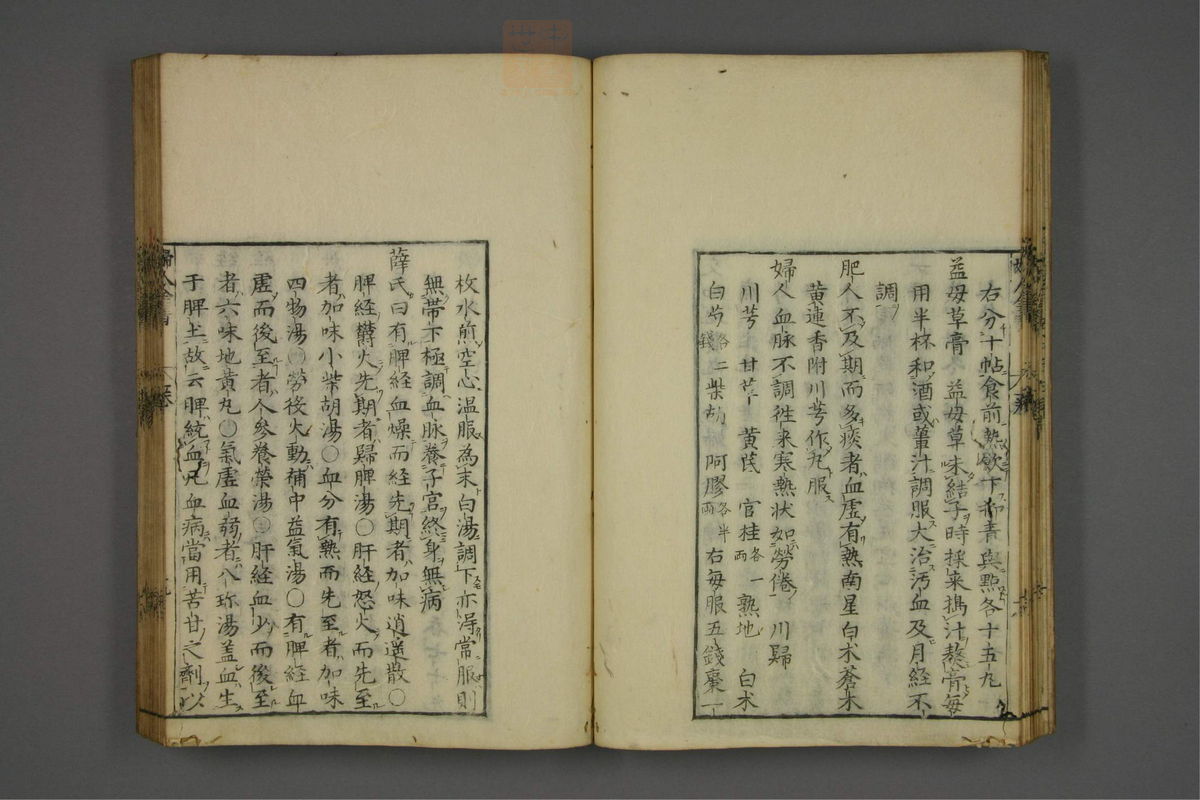 右分十帖食前熱欲下抑青與點各十五丸
益母草膏 益母草未結子時採来搗汁熬膏每
用半杯和酒或薑汁調服大治汚血及月經不
調
肥人不及期而多痰者血虛有熱南星白术蒼术
黄連香附川芎作丸服
婦人血脉不調徃来寒熱状如勞倦 川歸
川芎 甘艸 黄芪 官桂各一兩 熟地 白术
白芍各二錢 柴胡 阿膠各半兩 右每服五錢棗一
枚水煎空心温服為末白湯調下亦得常服則
無帯下極調血脉養子宮終身無病
薛氏曰有脾經血燥而経先期者加味逍遥散〇
脾経欝火先期者歸脾湯〇肝経怒火而先至
者加味小柴胡湯〇血分有熱而先至者加味
四物湯〇勞役火動補中益氣湯〇有脾経血
虛而後至者人参養榮湯〇肝経血少而後至
者六味地黄丸〇氣虛血弱者八珎湯盖血生
于脾土故云脾統血凡血病當用苦甘之劑以